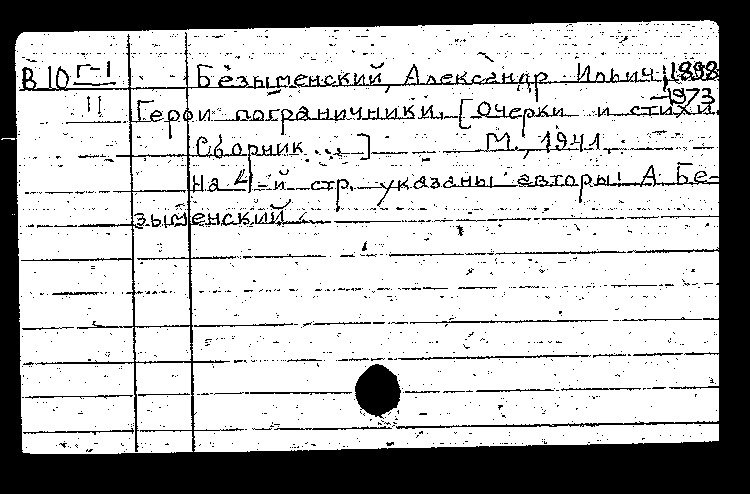 В 10 Г-1 Безыменский, Александр Ильич, 1898
-1973
11 Герои пограничники. [Очерки и стихи.
Сборник ...] М., 1941.
На 4-й стр. указаны авторы: А. Бе-
зыменский...